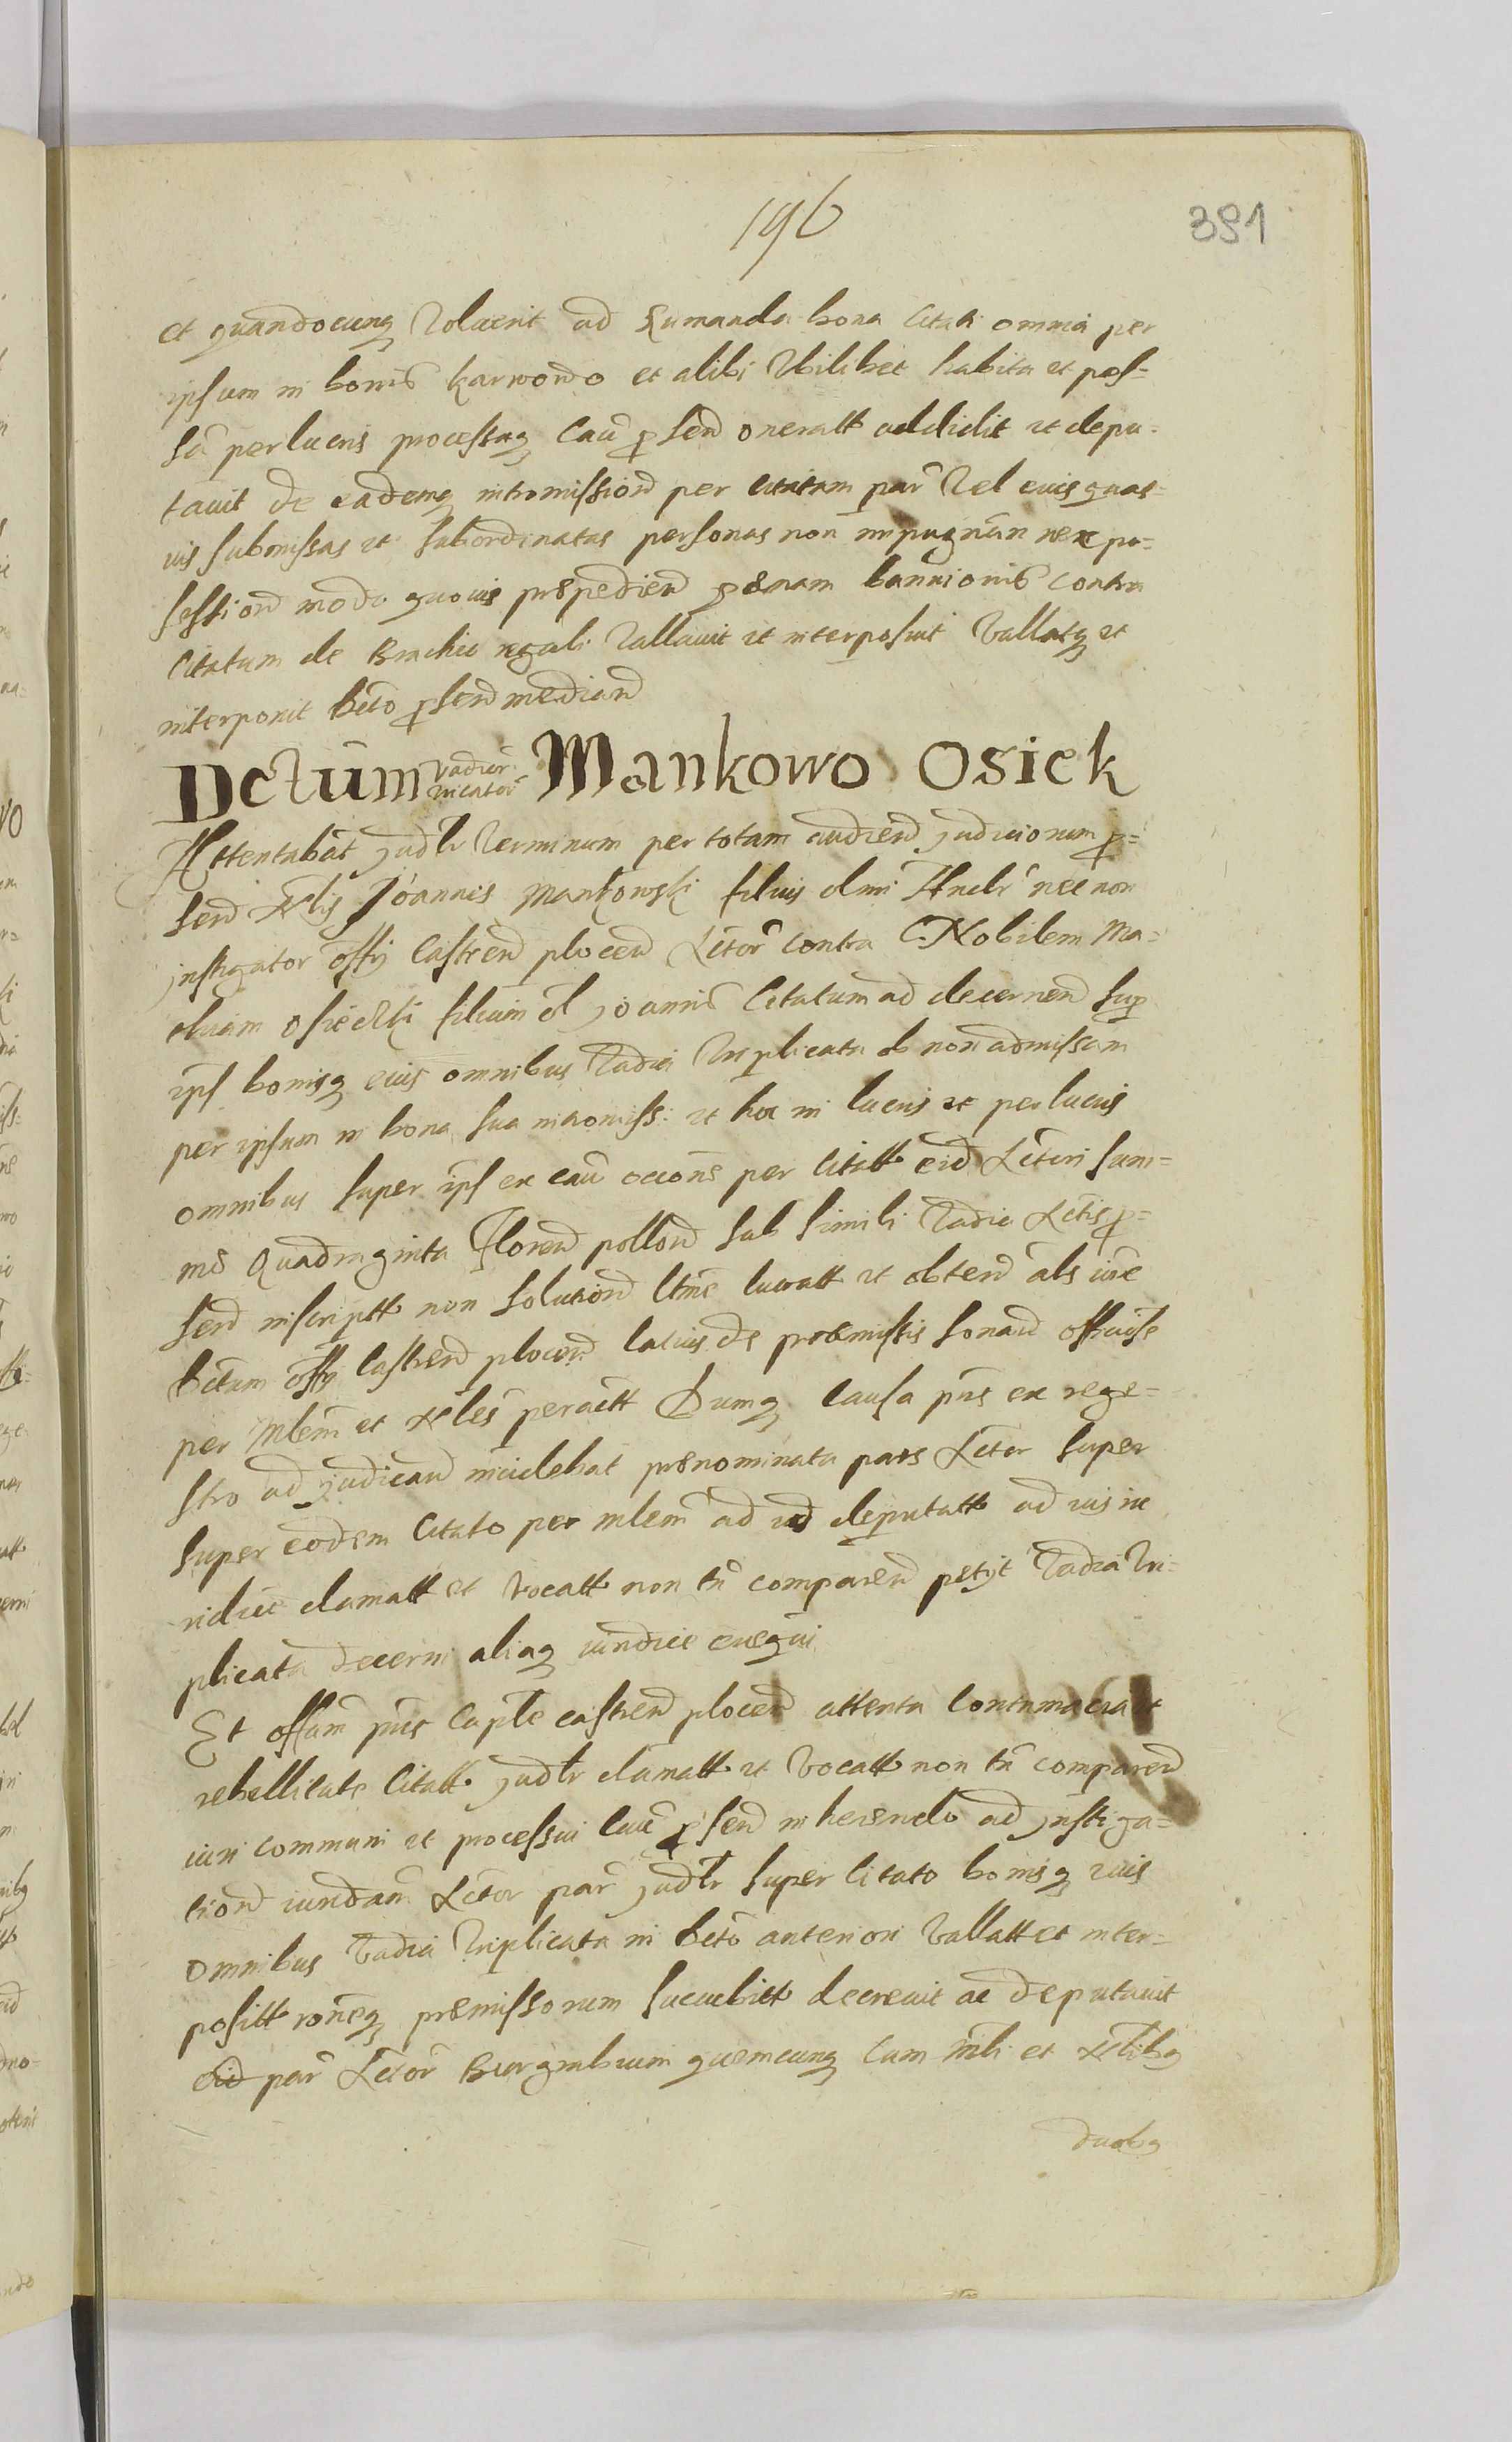 196
391
et quandocunq Voluerit ad Sumanda bona Citati omnia per
ipsum in bonis karwowo et alibi Vbilibet habita et pos-
sa perlucris processuq Cau p̄sen oneratt addidit et depu-
tauit de eademq intromission per citatam par Vel euis quas-
uis submissas et subordinatas personas non impugnan nexpo-
session modo quouis præpedien pœnam bannionis contra
Citatum de Brachio regali Vallauit et interposuit Vallatq et
interponit Dcto p̄sen median
Dctum vadior triplicator Mankowo Osiek
Attentabat judlr Terminum per totam audien judiciorum p̄-
sen Nlis Joannis Mankowski filius olmi Andr nec non
jnstigator offy Castren plocen Actor contra G Nobilem Ma-
thiam osiecki filium ol joannis Citatum ad decernen sup
ips bonisq euis omnibus Vadia Triplicata ob non admissam
per ipsum in bona sua intromiss: et hoc in lucris et perlucris
omnibus super ips ex cau occons per Citatt eid Actori sum-
mæ Quadraginta Floren pollon sub simili Vadio Actis p̄-
sen inscriptt non solution ltme lucratt et obten als iuxe
Dctum offy Castren plocen latius de præmissis sonan officiose
per Mlem et Nles peractt Dumq Causa pns ex rege-
stro ad judican incidebat prænominata pars Actor super
super eodem Citato per mlem ad id deputatt ad iusiu
ridice clamatt et Vocatt non tn comparen petyt Vadia Tri-
plicata decerni aliaq iuridice exequi
Et offum pns Capte castren plocen attenta Contumacia et
rebellitate Citatt judlr clamatt et Vocatt non tn comparen
iuri communi et processui Cau p̄sen inherendo ad jnstiga-
tion iuridam Actor par judlr super Citato bonisq euis
omnibus Vadia Triplicata in Dcto anteriori Vallatt et inter-
positt roneq præmissorum succubitt decreuit ac deputauit
eid par Actor Burgrabium quemcunq Cum mli et Nlibq
duobq